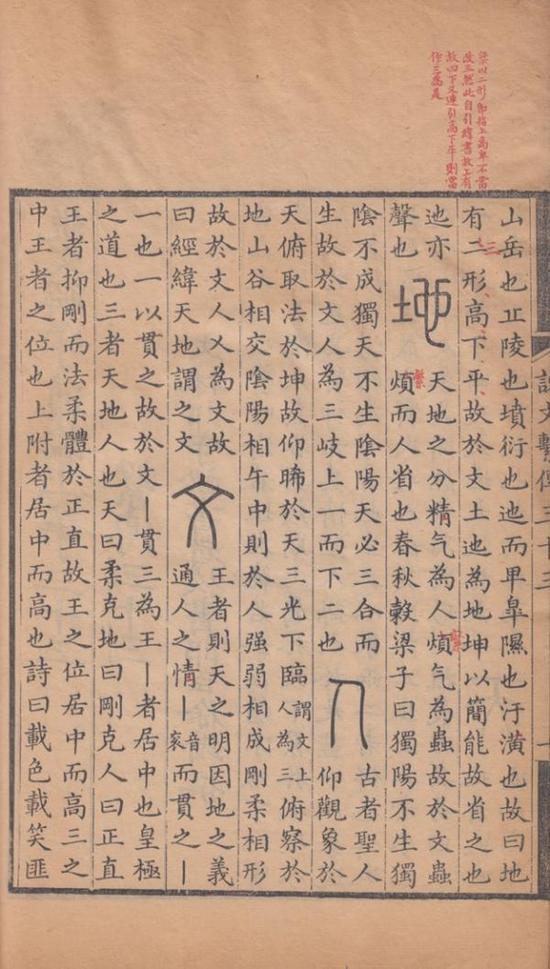 改三然此自引緯書故上有
故四下又連引高下平則當
作三為是
說文繫傳三十三
山岳也丘陵也墳衍也迆而早皐隰也汙潢也故曰地
有二形高下平故於文土迆為地坤以簡能故省之也
三
迆亦
聲也
地
天地之分精气為人煩气為蟲故於文蟲
煩而人省也春秋穀梁子曰獨陽不生獨
陰不成獨天不生陰陽天必三合而
生故於文人為三岐上一而下二也
人
古者聖人
仰觀象於
天俯取法於坤故仰晞於天三光下臨謂文上人為三俯察於
地山谷相交陰陽相午中則於人强弱相成剛柔相形
故於文人乂為文故
曰經緯天地謂之文
文
王者則天之明因地之義
通人之情丨音衮而貫之丨
一也一以貫之故於文丨貫三為王丨者居中也皇極
之道也三者天地人也天曰柔克地曰剛克人曰正直
王者抑剛而法柔體於正直故王之位居中而高三之
中王者之位也上附者居中而高也詩曰載色載笑匪